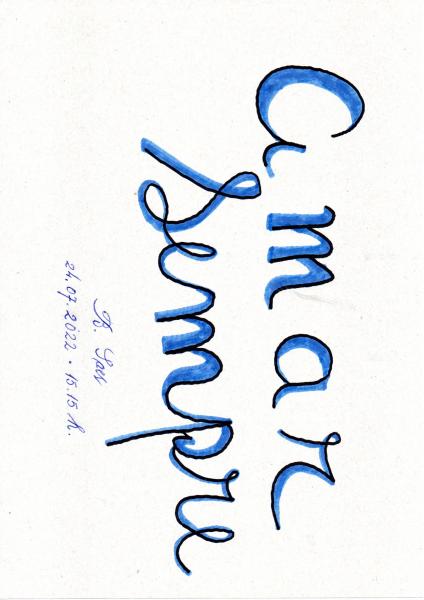 amar
Sempre
24.07.2022 · 15.15 h.